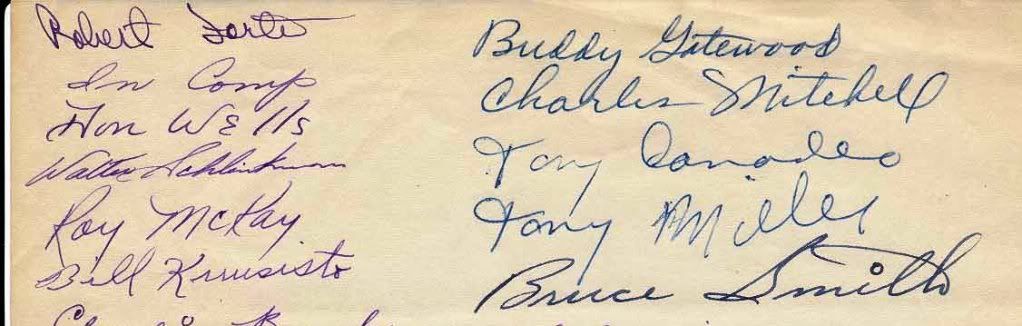 Robert Forte
Irv Comp
Don Wells
Walter Schlinkman
Roy McKay
Bill Kuusisto
Buddy Gatewood
Charles Mitchell
Tony Canadeo
Tony Miller
Bruce Smith